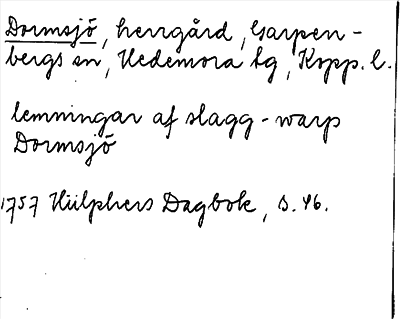 Dormsjö, herrgård, Garpen-
bergs sn, Hedemora tg, Kopp. l.
lemningar af slagg-warp
Dormsjö
1757 Hülphers Dagbok, s. 46.